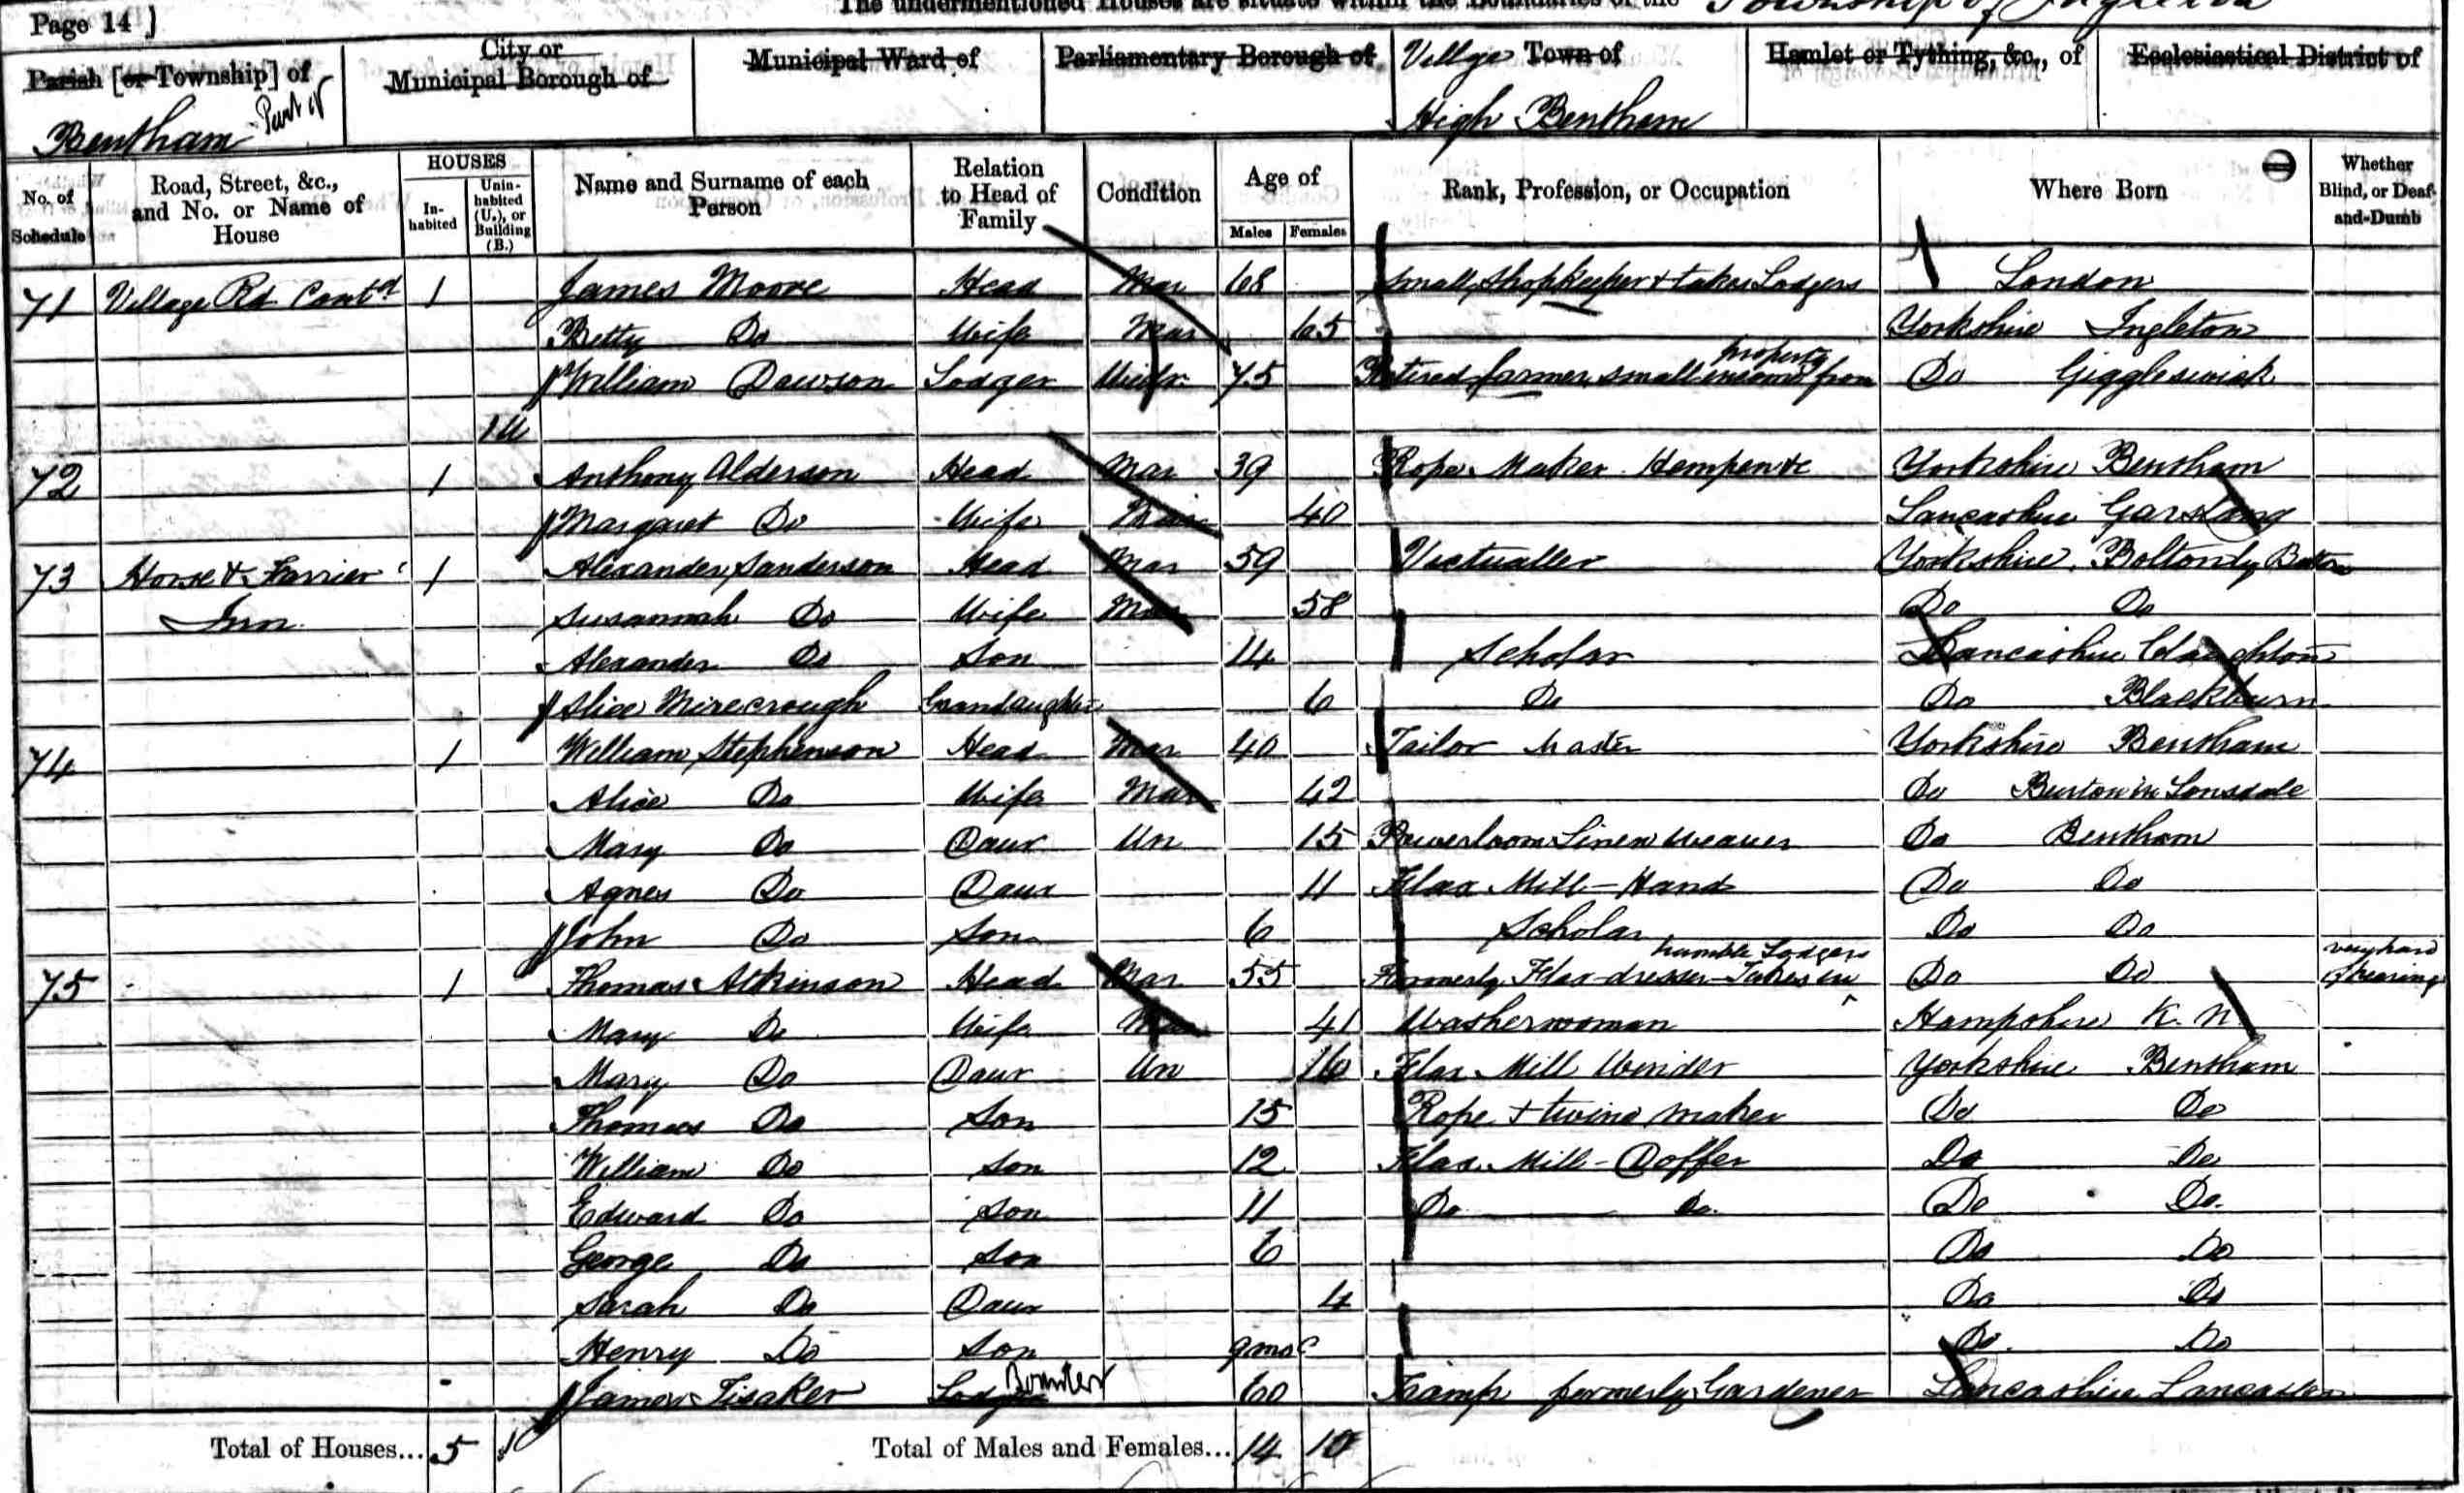 The undermentioned Houses are situate within the Boundaries of the Township of
Page 14]
Parish [or Township] of Bentham Part of
City or Municipal Borough of
Municipal Ward of
Parliamentary Borough of
Village Town of High Bentham
Hamlet or Tything, &c., of
Ecclesiastical District of
No. of Schedule
Road, Street, &c., and No. or Name of House
HOUSES
In-habited
Unin-habited (U.), or Building (B.)
Name and Surname of each Person
Relation to Head of Family
Condition
Age of
Males
Females
Rank, Profession, or Occupation
Where Born
Whether Blind, or Deaf-and-Dumb
71 Village Rd Contd 1 James Moore Head Mar 68 Small Shopkeeper & takes Lodgers London
Betty Do Wife Mar 65 Yorkshire Ingleton
William Dawson Lodger Widr. 75 Retired farmer, small income from property Do Giggleswick
1U
72 1 Anthony Alderson Head Mar 39 Rope Maker Hempen &c Yorkshire Bentham
Margaret Do Wife Mar 40 Lancashire Garstang
73 Horse & Farrier Inn 1 Alexander Sanderson Head Mar 59 Victualler Yorkshire Bolton by Bolton
Susannah Do Wife Mar 58 Do Do
Alexander Do Son 14 Scholar Lancashire Claughton
Alice Mirecrough Grandaughter 6 Do Do Blackburn
74 1 William Stephenson Head Mar 40 Tailor Master Yorkshire Bentham
Alice Do Wife Mar 42 Do Burton in Lonsdale
Mary Do Daur Un 15 Powerloom Linen Weaver Do Bentham
Agnes Do Daur 11 Flax Mill-Hand Do Do
John Do Son 6 Scholar Do Do
75 1 Thomas Atkinson Head Mar 55 Formerly Flax-dresser-Takes in humble Lodgers Do Do very hard of hearing
Mary Do Wife Mar 41 Washerwoman Hampshire K. N.
Mary Do Daur Un 16 Flax Mill Winder Yorkshire Bentham
Thomas Do Son 15 Rope & twine maker Do Do
William Do Son 12 Flax Mill-Doffer Do Do
Edward Do Son 11 Do Do. Do Do.
George Do Son 6 Do Do
Sarah Do Daur 4 Do Do
Henry Do Son 9mos Do. Do
James Tisaker Lodger Boarder 60 Tramp formerly Gardener Lancashire Lancaster
Total of Houses... 5 1 Total of Males and Females... 14 10